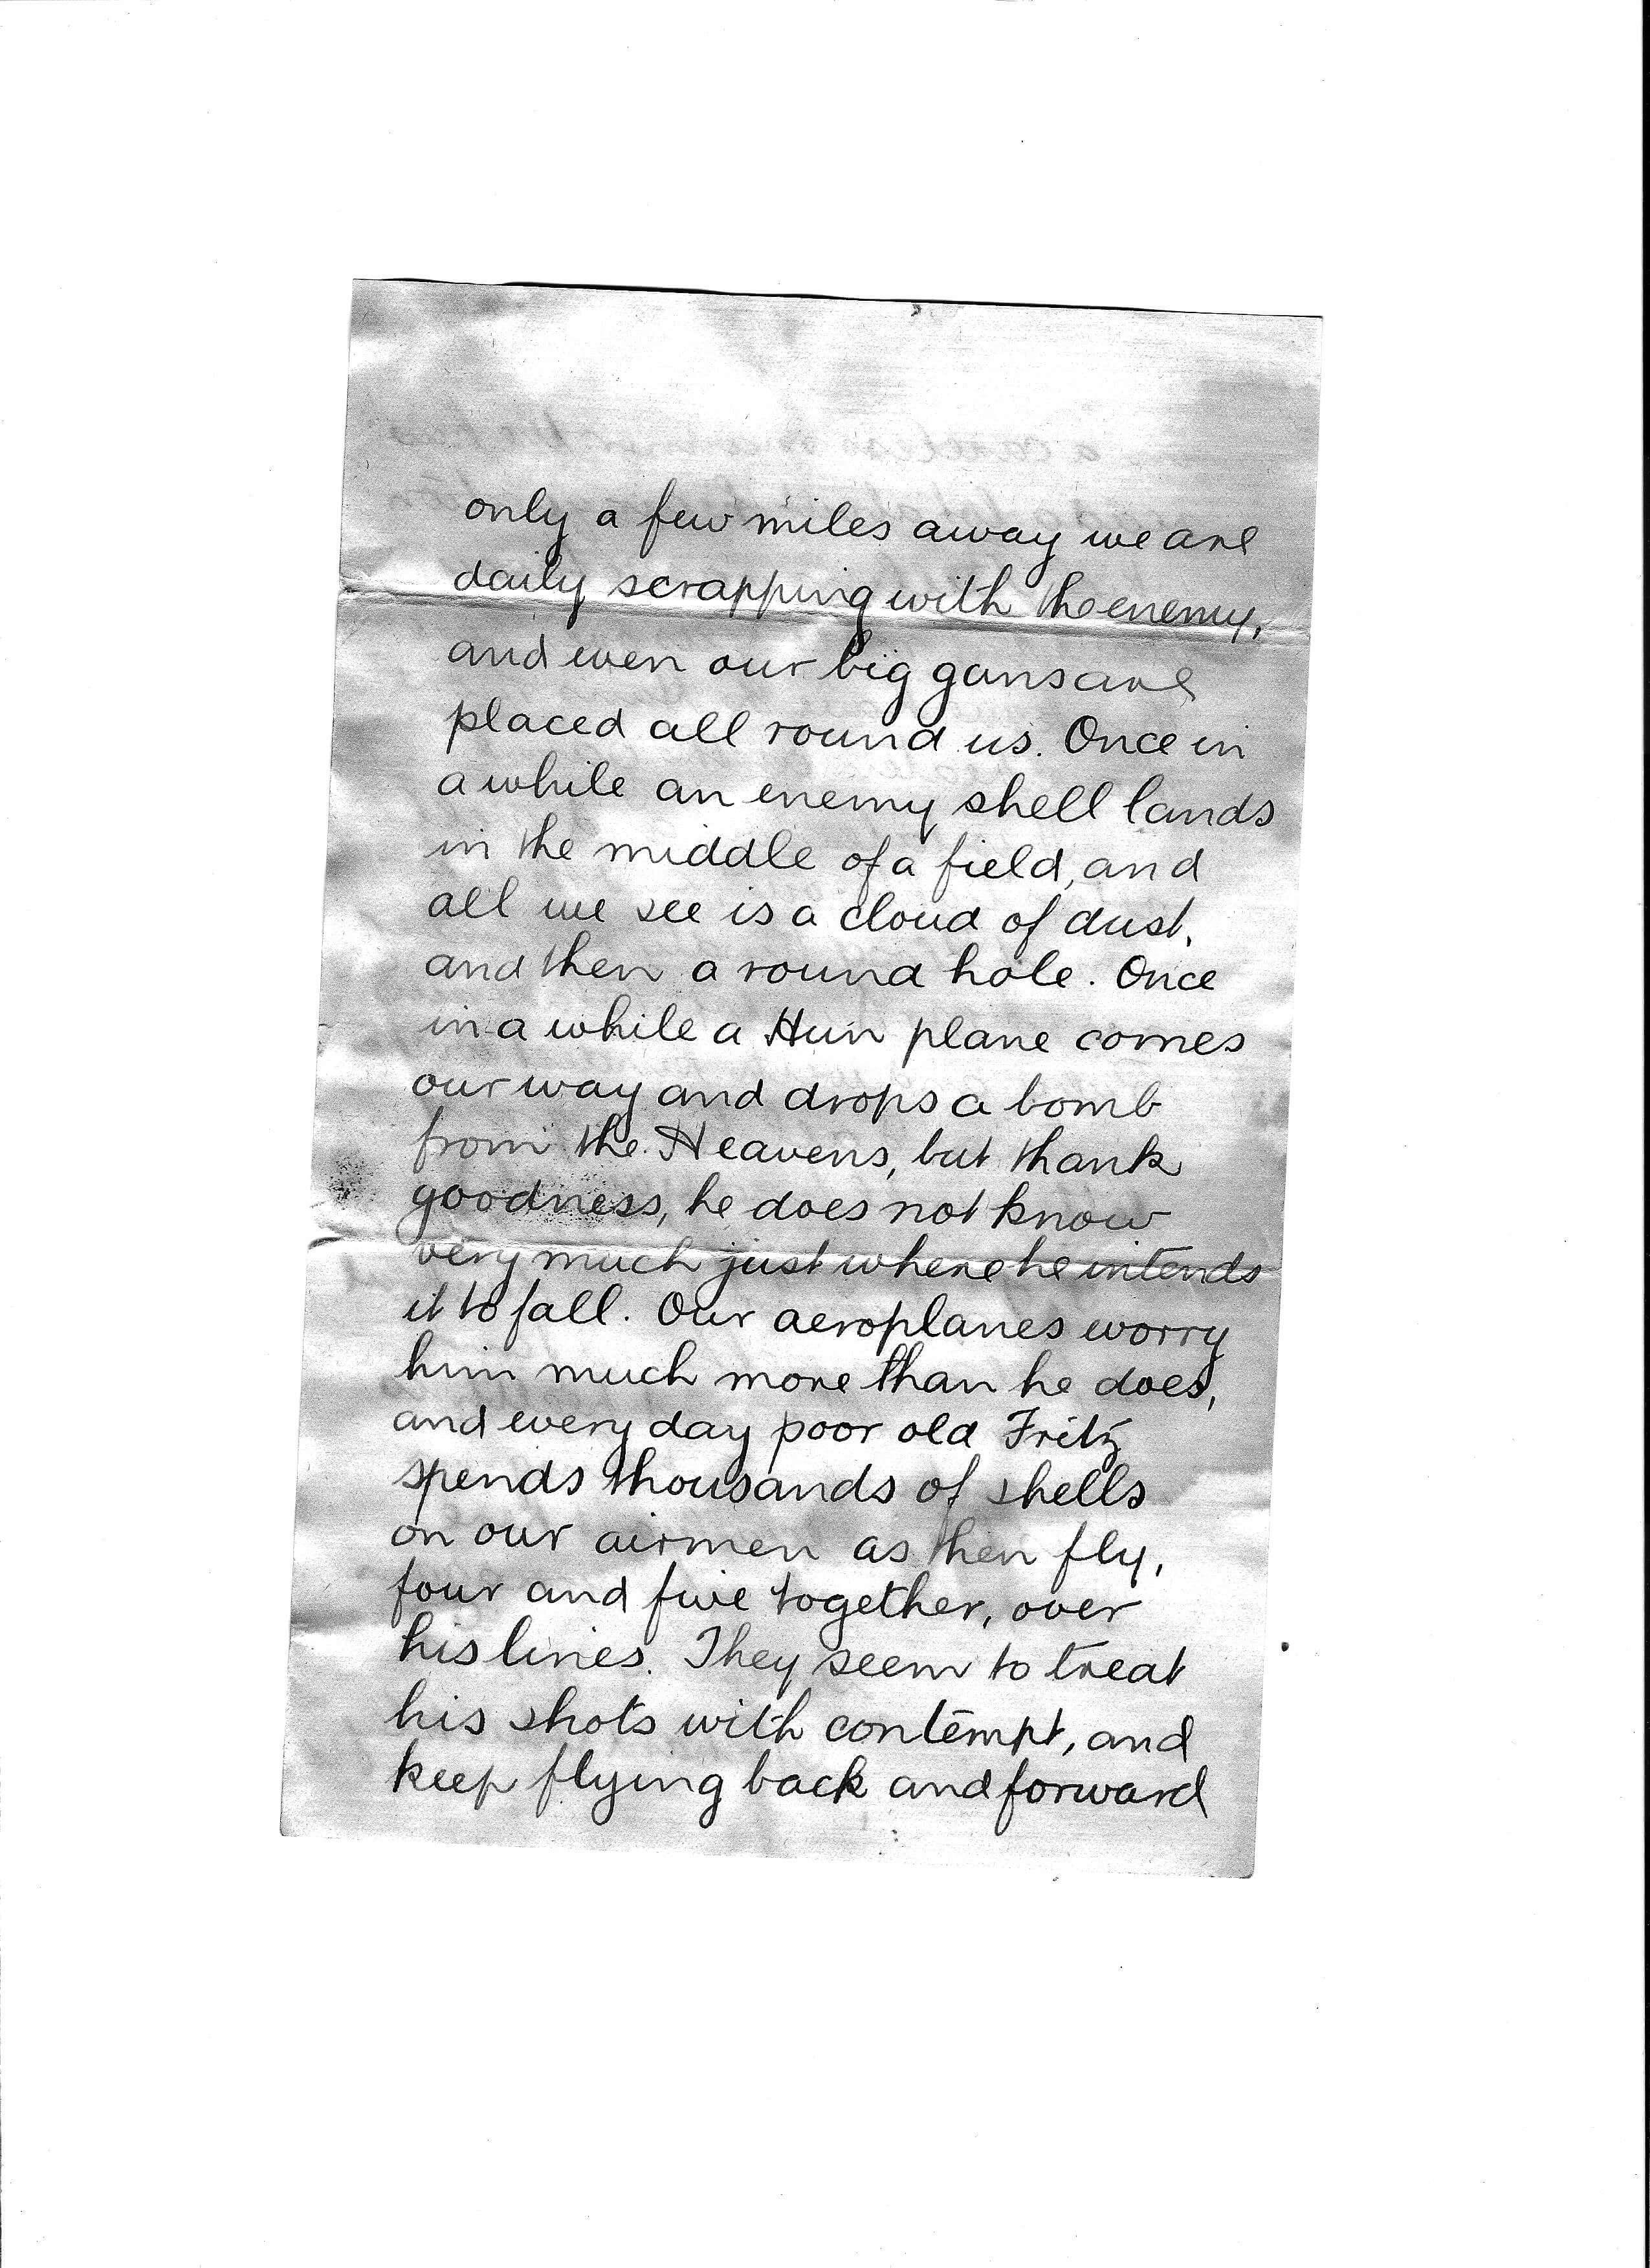 only a few miles away we are
daily scrapping with the enemy,
and even our big guns are
placed all round us. Once in
a while an enemy shell lands
in the middle of a field, and
all we see is a cloud of dust,
and then a round hole. Once
in a while a Hun plane comes
our way and drops a bomb
from the Heavens, but thank
goodness, he does not know
very much just where he intends
it to fall. Our aeroplanes worry
him much more than he does,
and every day poor old Fritz
spends thousands of shells
on our airmen as then fly,
four and five together, over
his lines. They seem to treat
his shots with contempt, and
keep flying back and forward